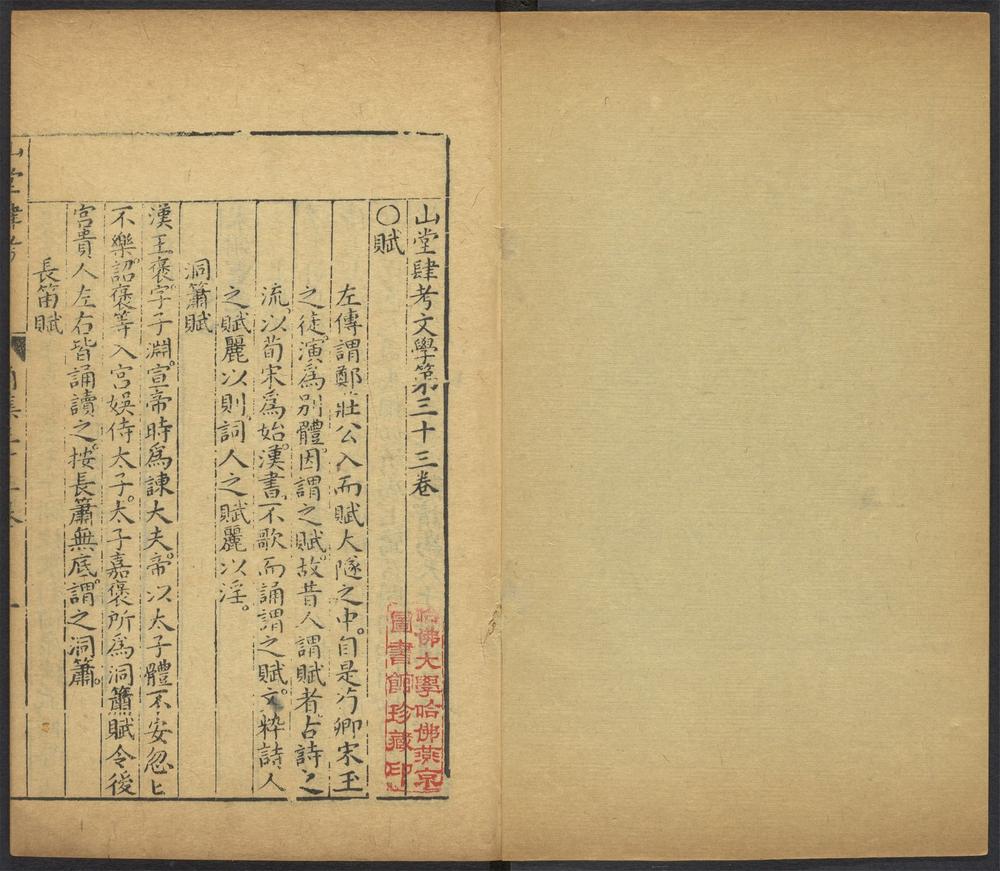 山堂肆考文學第三十三卷
○賦
左傳謂鄭莊公入而賦大隧之中。自是荀卿宋玉
之徒。演為別體。因謂之賦。故昔人謂賦者。古詩之
流。以荀宋為始。漢書不歌而誦謂之賦。文粹詩人
之賦麗以則。詞人之賦麗以淫。
洞簫賦
漢王褒。字子淵。宣帝時為諫大夫。帝以太子體不安忽忽
不樂。詔褒等入宮娛侍太子。太子嘉褒所為洞簫賦令後
宮貴人左右皆誦讀之。按長簫無底。謂之洞簫。
長笛賦
山堂肆考
哈佛大學哈佛燕京
圖書館珍藏印